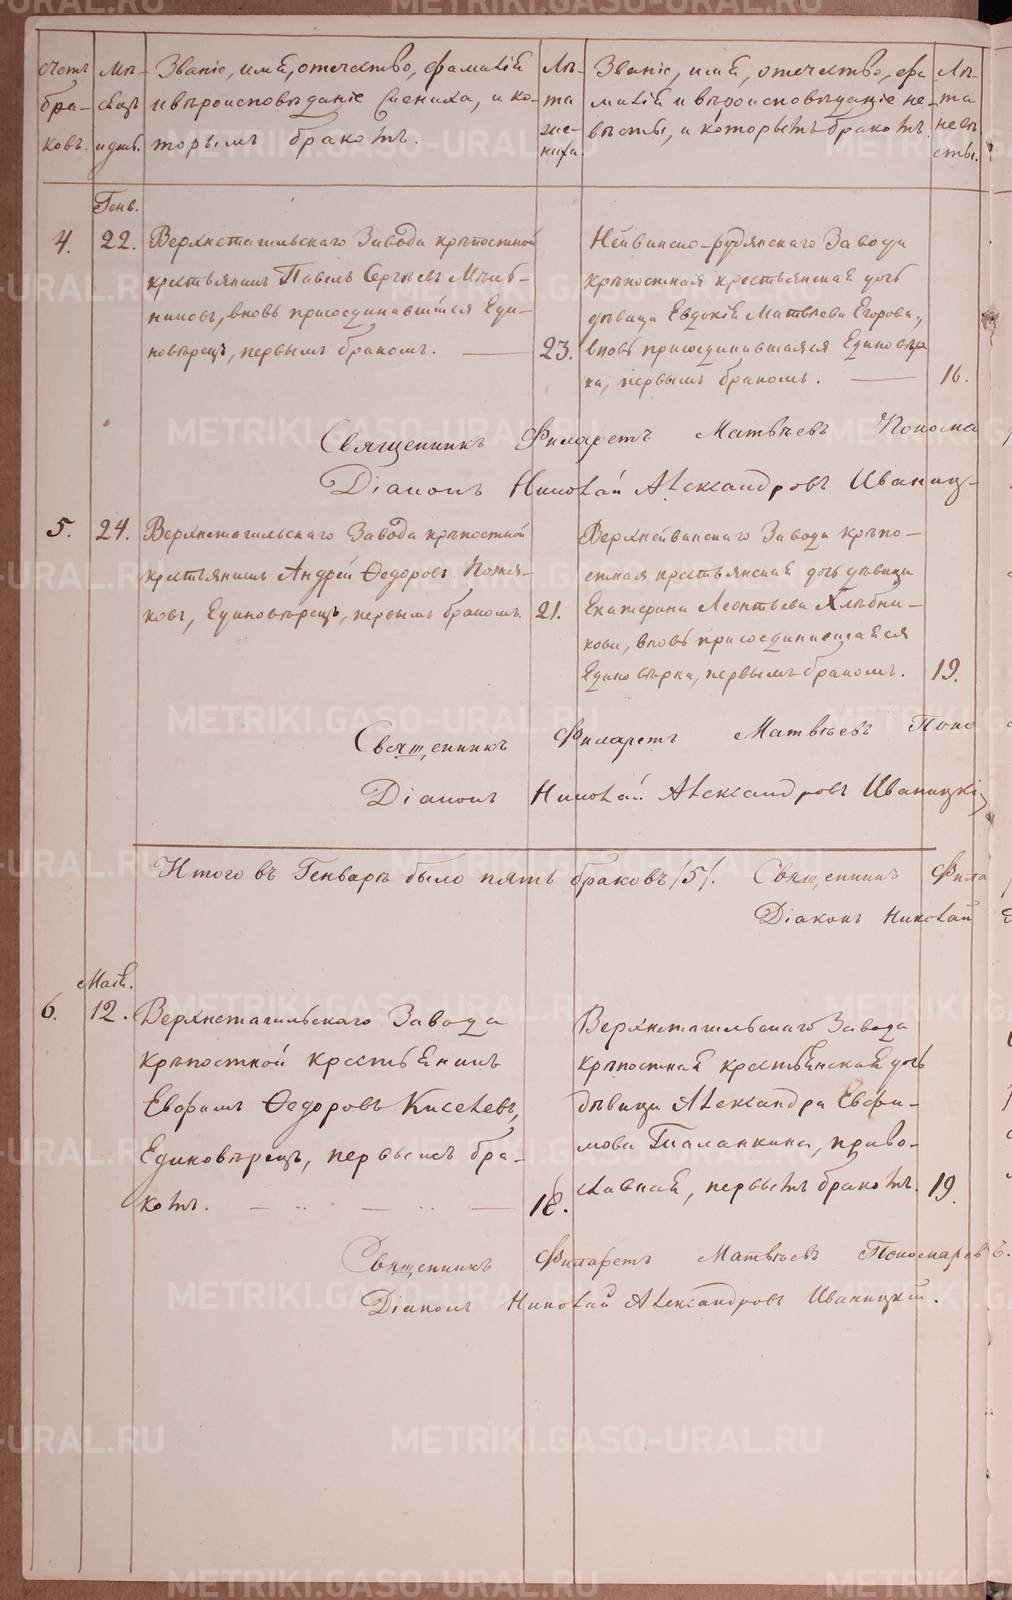 Счетъ бра- ковъ.
Мѣ- сяцъ и день.
Званіе, имя, отечество, фамилія
и вѣроисповѣданіе жениха, и ко-
торымъ бракомъ.
Лѣ- та же- ниха.
Званіе, имя, отечество, фа
милія и вѣроисповѣданіе не-
вѣсты, и которымъ бракомъ.
Лѣ- та невѣ сты.
Генв.
4. 22.
Верхнетагильскаго Завода крѣпостной
крестьянинъ Павелъ Сергѣевъ
никовъ, вновь присоединившійся Еди-
новѣрецъ, первымъ бракомъ. 23.
Нейвинско-рудянскаго Завода
крѣпостная крестьянская дочь
дѣвица Евдокія Матвѣева Егорова,
вновь присоединившаяся Единовѣр
ка, первымъ бракомъ. 16.
Священникъ Филаретъ Матвѣевъ Понома
Діаконъ Николай Александровъ Иваниц-
5. 24.
Верхнетагильскаго Завода крѣпостной
крестьянинъ Андрей Ѳедоровъ Пожи-
ковъ, Единовѣрецъ, первымъ бракомъ. 21.
Верхнейвинскаго Завода крѣпо-
стная крестьянская дочь дѣвица
Екатерина Леонтьева Хлѣбни-
кова, вновь присоединившаяся
Единовѣрка, первымъ бракомъ. 19.
Священникъ Филаретъ Матвѣевъ Поно
Діаконъ Николай Александровъ Иваницкій
Итого въ Генварѣ было пять браковъ /5/. Священникъ Фила
Діаконъ Николай
Маія.
6. 12.
Верхнетагильскаго Завода
крѣпостной крестьянинъ
Евфимъ Ѳедоровъ Киселевъ,
Единовѣрецъ, первымъ бра-
комъ. 18.
Верхнетагильскаго Завода
крѣпостная крестьянская дочь
дѣвица Александра Евфи-
мова Галанкина, право-
славная, первымъ бракомъ. 19.
Священникъ Филаретъ Матвѣевъ Пономаревъ.
Діаконъ Николай Александровъ Иваницкій.
METRIKI.GASO-URAL.RU